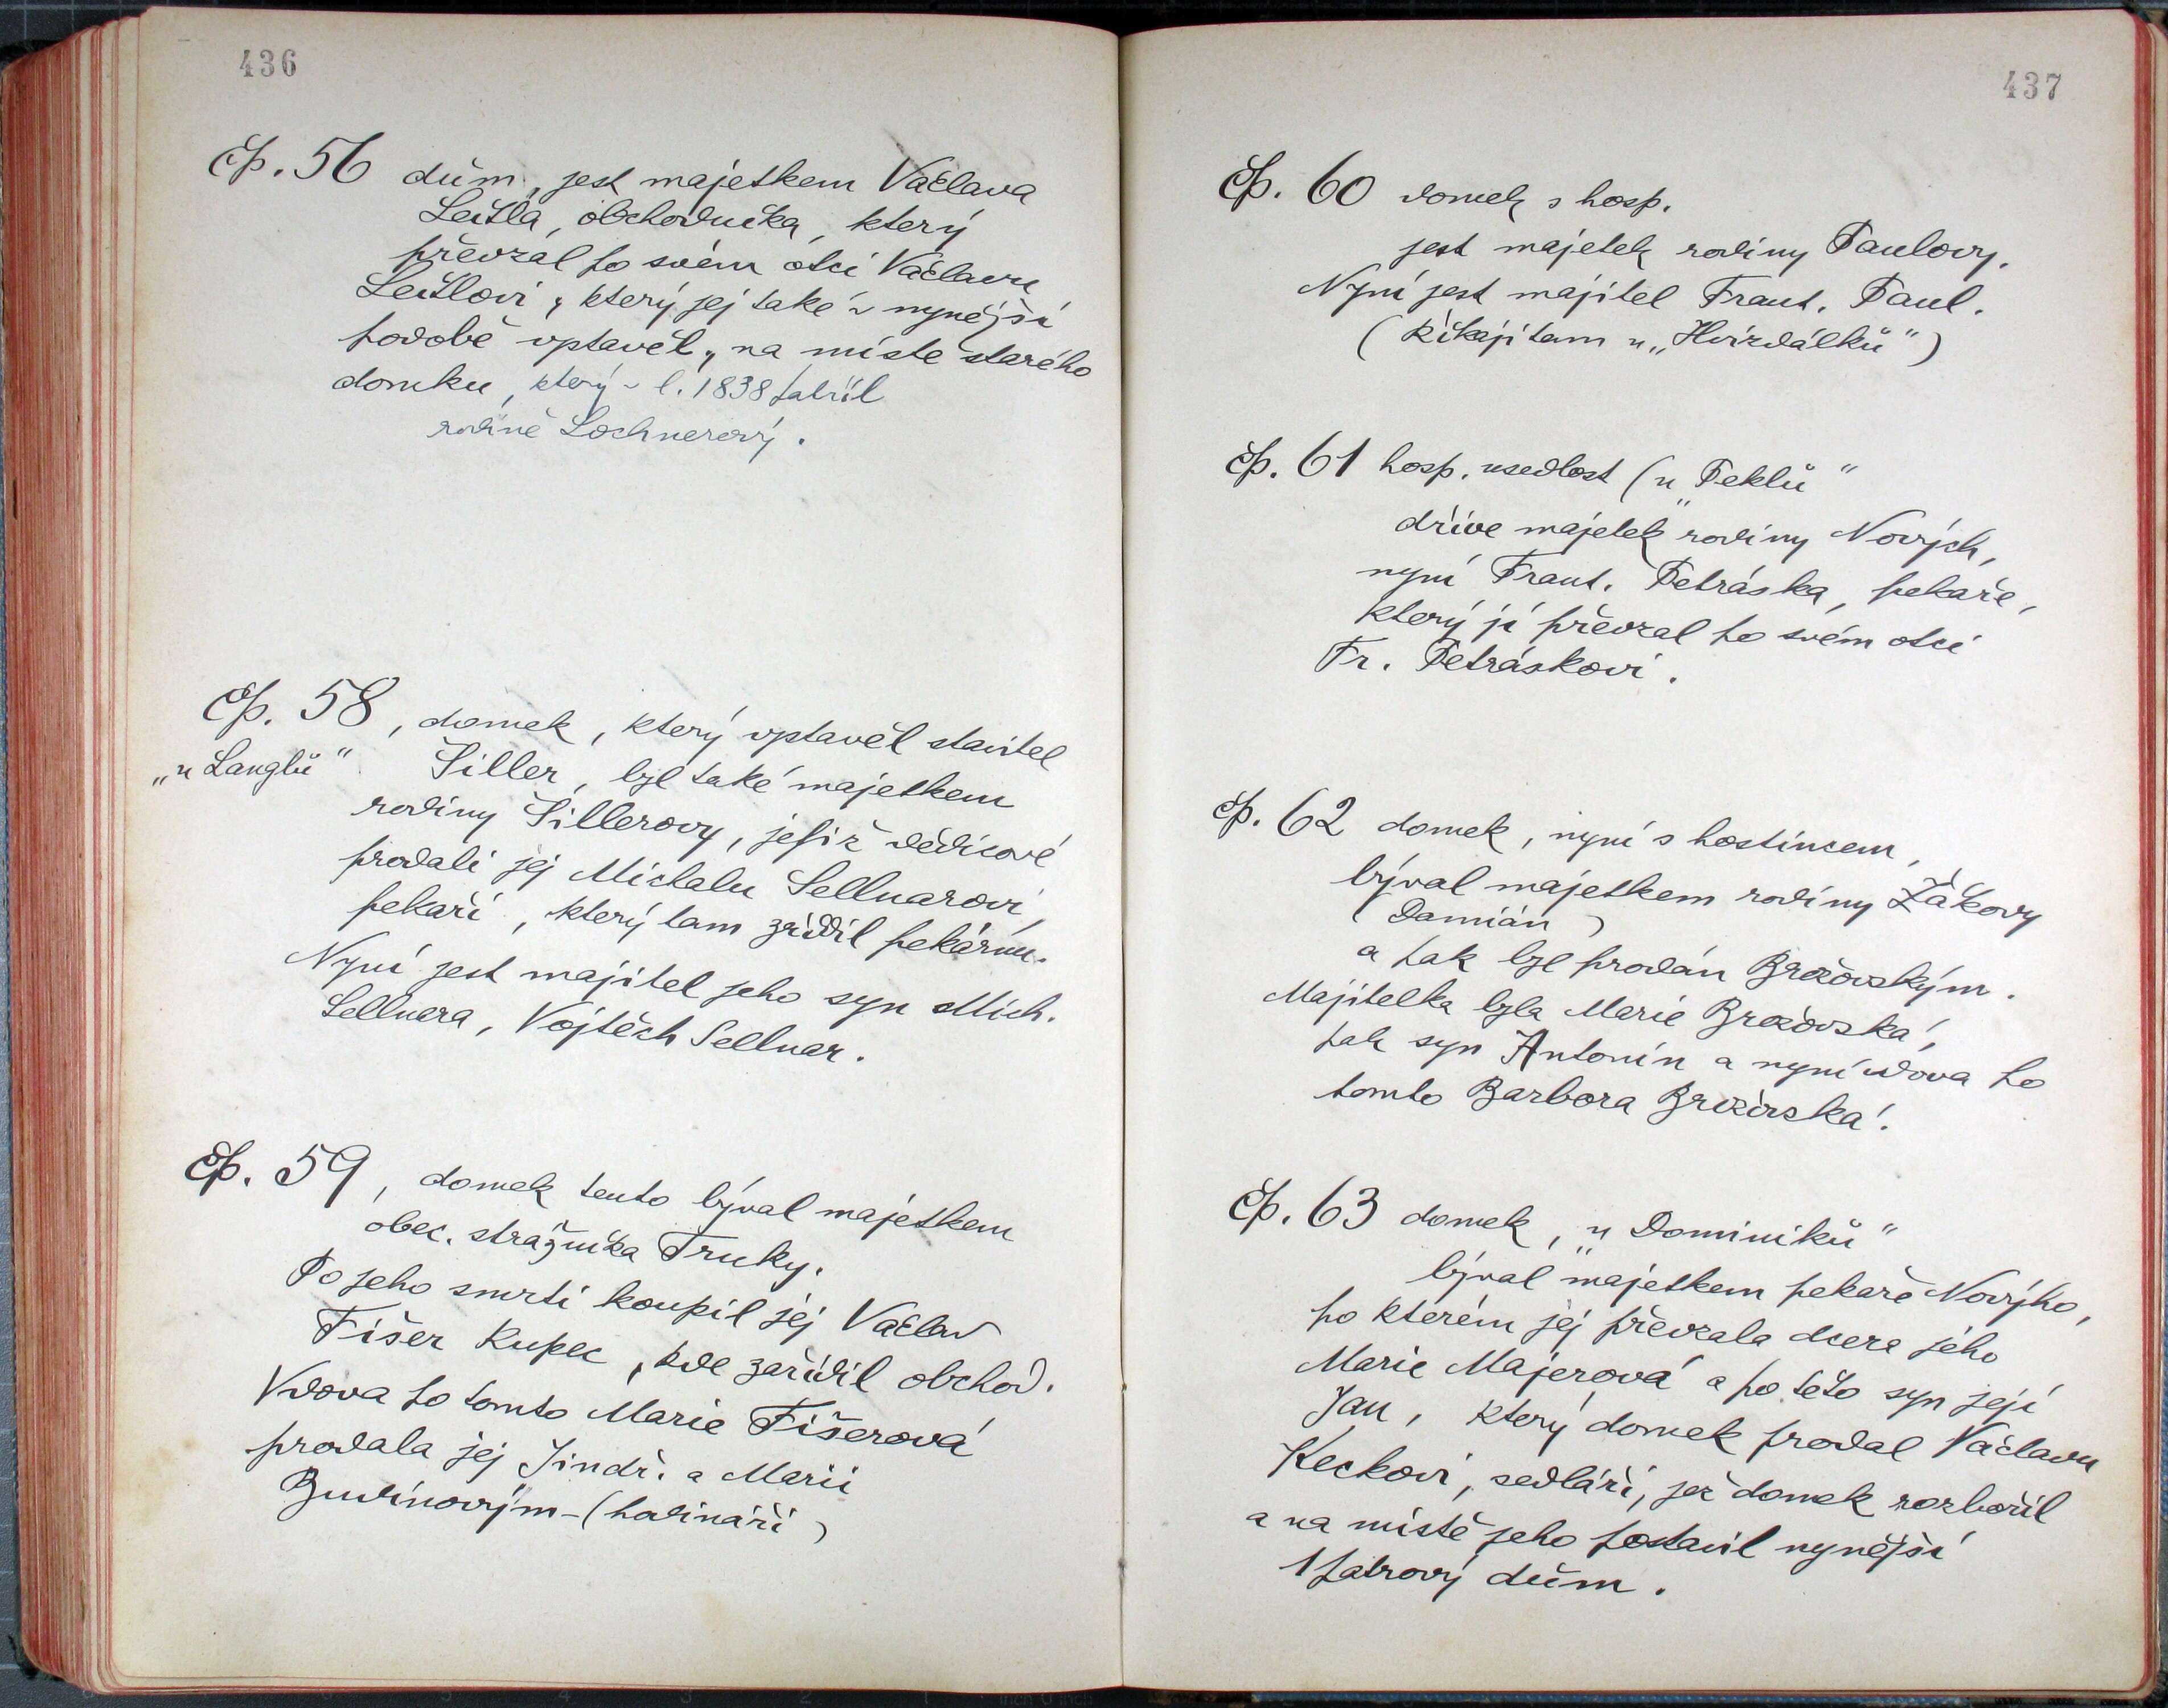 436
čp. 56 dům, jest majetkem Václava
Leitla, obchodníka, který
převzal po svém otci Václavu
Leitlovi, který jej také v nynější
podobě vystavěl, na místě starého
domku, který v l. 1838 patřil
rodině Lochnerový.
čp. 58, domek, který vystavěl stavitel
„u Langlů" Šiller, byl také majetkem
rodiny Šillerovy, jejíž dědicové
prodali jej Michalu Sellnarovi,
pekaři, který tam zřídil pekárnu.
Nyní jest majitel jeho syn Mich.
Sellnera, Vojtěch Sellnar.
čp. 59, domek tento býval majetkem
obec. strážníka Truky.
Po jeho smrti koupil jej Václav
Fišer kupec, kde zařídil obchod.
Vdova po tomto Marie Fišerová
prodala jej Jindř. a Marii
Budínovým - (hodináři)
437
čp. 60 domek s hosp.
jest majetek rodiny Paulovy.
Nyní jest majitel Frant. Paul.
(Říkají tam u „Hvízdálků")
čp. 61 hosp. usedlost (u „Peklů"
dříve majetek rodiny Nových,
nyní Frant. Petráska, pekaře,
který ji převzal po svém otci
Fr. Petráskovi.
čp. 62 domek, nyní s hostincem,
býval majetkem rodiny Žákovy
(Damián)
a pak byl prodán Brožovským.
Majitelka byla Marie Brožovská,
pak syn Antonín a nyní vdova po
tomto Barbora Brožovská.
čp. 63 domek, „u Dominiků"
býval majetkem pekaře Nového,
po kterém jej převzala dcera jeho
Marie Majerová a po této syn její
Jan, který domek prodal Václavu
Keckovi, sedláři, jež domek rozbořil
a na místě jeho postavil nynější
1 patrový dům.